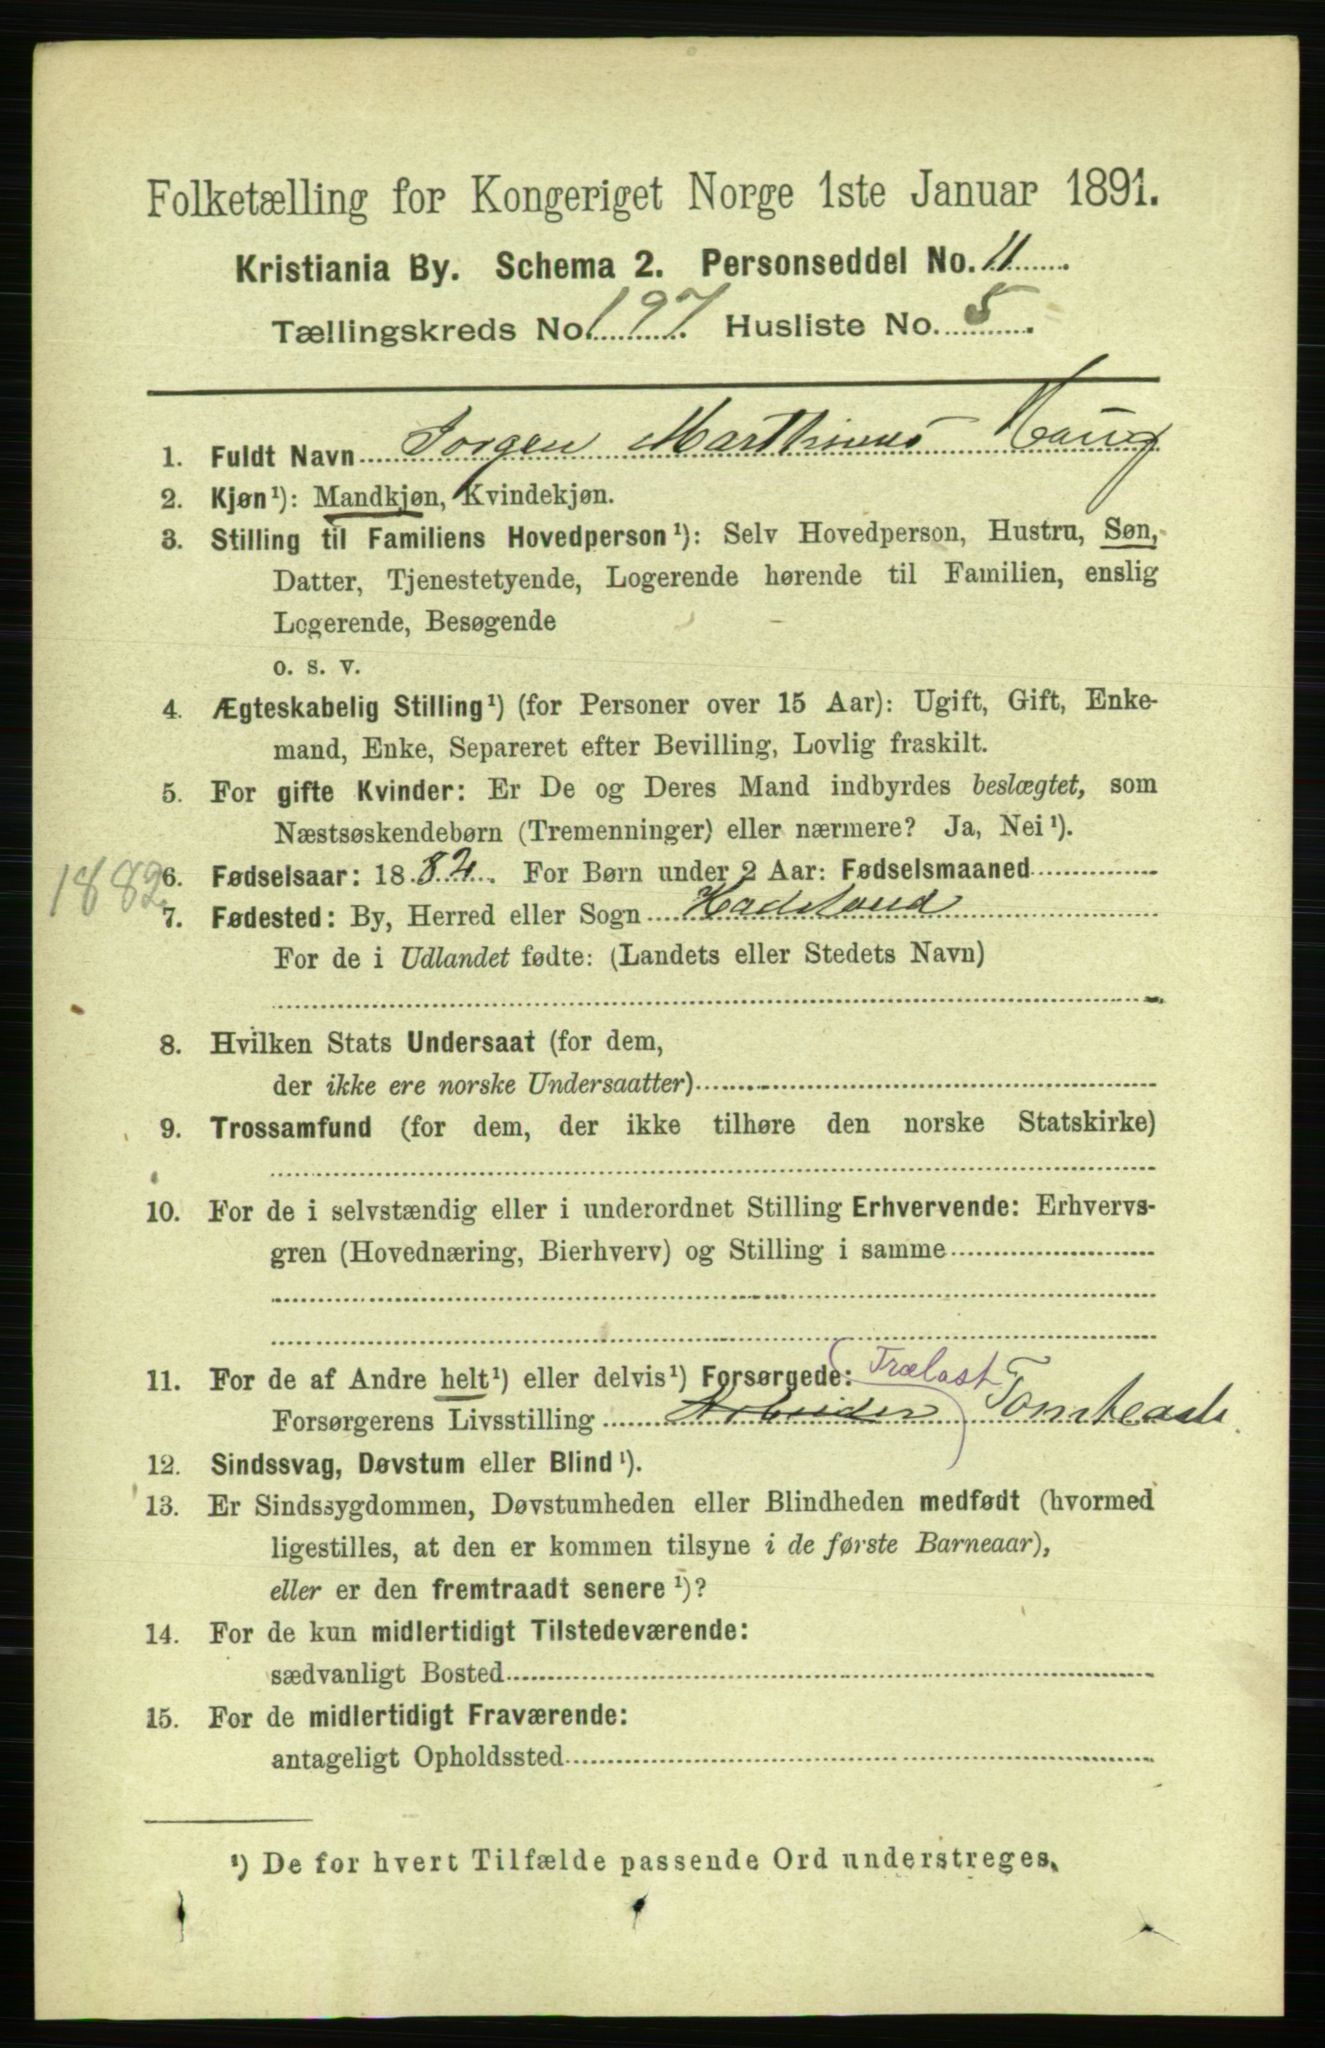 Folketælling for Kongeriget Norge 1ste Januar 1891.
Kristiania By. Schema 2. Personseddel No. 11
Tællingskreds No. 197 Husliste No. 5
1. Fuldt Navn Jørgen Marthinus Haug
2. Kjøn¹): Mandkjøn, Kvindekjøn.
3. Stilling til Familiens Hovedperson¹): Selv Hovedperson, Hustru, Søn,
Datter, Tjenestetyende, Logerende hørende til Familien, enslig
Logerende, Besøgende
o. s. v.
4. Ægteskabelig Stilling¹) (for Personer over 15 Aar): Ugift, Gift, Enke-
mand, Enke, Separeret efter Bevilling, Lovlig fraskilt.
5. For gifte Kvinder: Er De og Deres Mand indbyrdes beslægtet, som
Næstsøskendebørn (Tremenninger) eller nærmere? Ja, Nei¹).
1882
6. Fødselsaar: 1882. For Børn under 2 Aar: Fødselsmaaned
7. Fødested: By, Herred eller Sogn Hadeland
For de i Udlandet fødte: (Landets eller Stedets Navn)
8. Hvilken Stats Undersaat (for dem,
der ikke ere norske Undersaatter)
9. Trossamfund (for dem, der ikke tilhøre den norske Statskirke)
10. For de i selvstændig eller i underordnet Stilling Erhvervende: Erhvervs-
gren (Hovednæring, Bierhverv) og Stilling i samme
11. For de af Andre helt¹) eller delvis¹) Forsørgede: Trælast
Forsørgerens Livsstilling Arbeider
12. Sindssvag, Døvstum eller Blind¹).
13. Er Sindssygdommen, Døvstumheden eller Blindheden medfødt (hvormed
ligestilles, at den er kommen tilsyne i de første Barneaar),
eller er den fremtraadt senere¹)?
14. For de kun midlertidigt Tilstedeværende:
sædvanligt Bosted
15. For de midlertidigt Fraværende:
antageligt Opholdssted
¹) De for hvert Tilfælde passende Ord understreges.